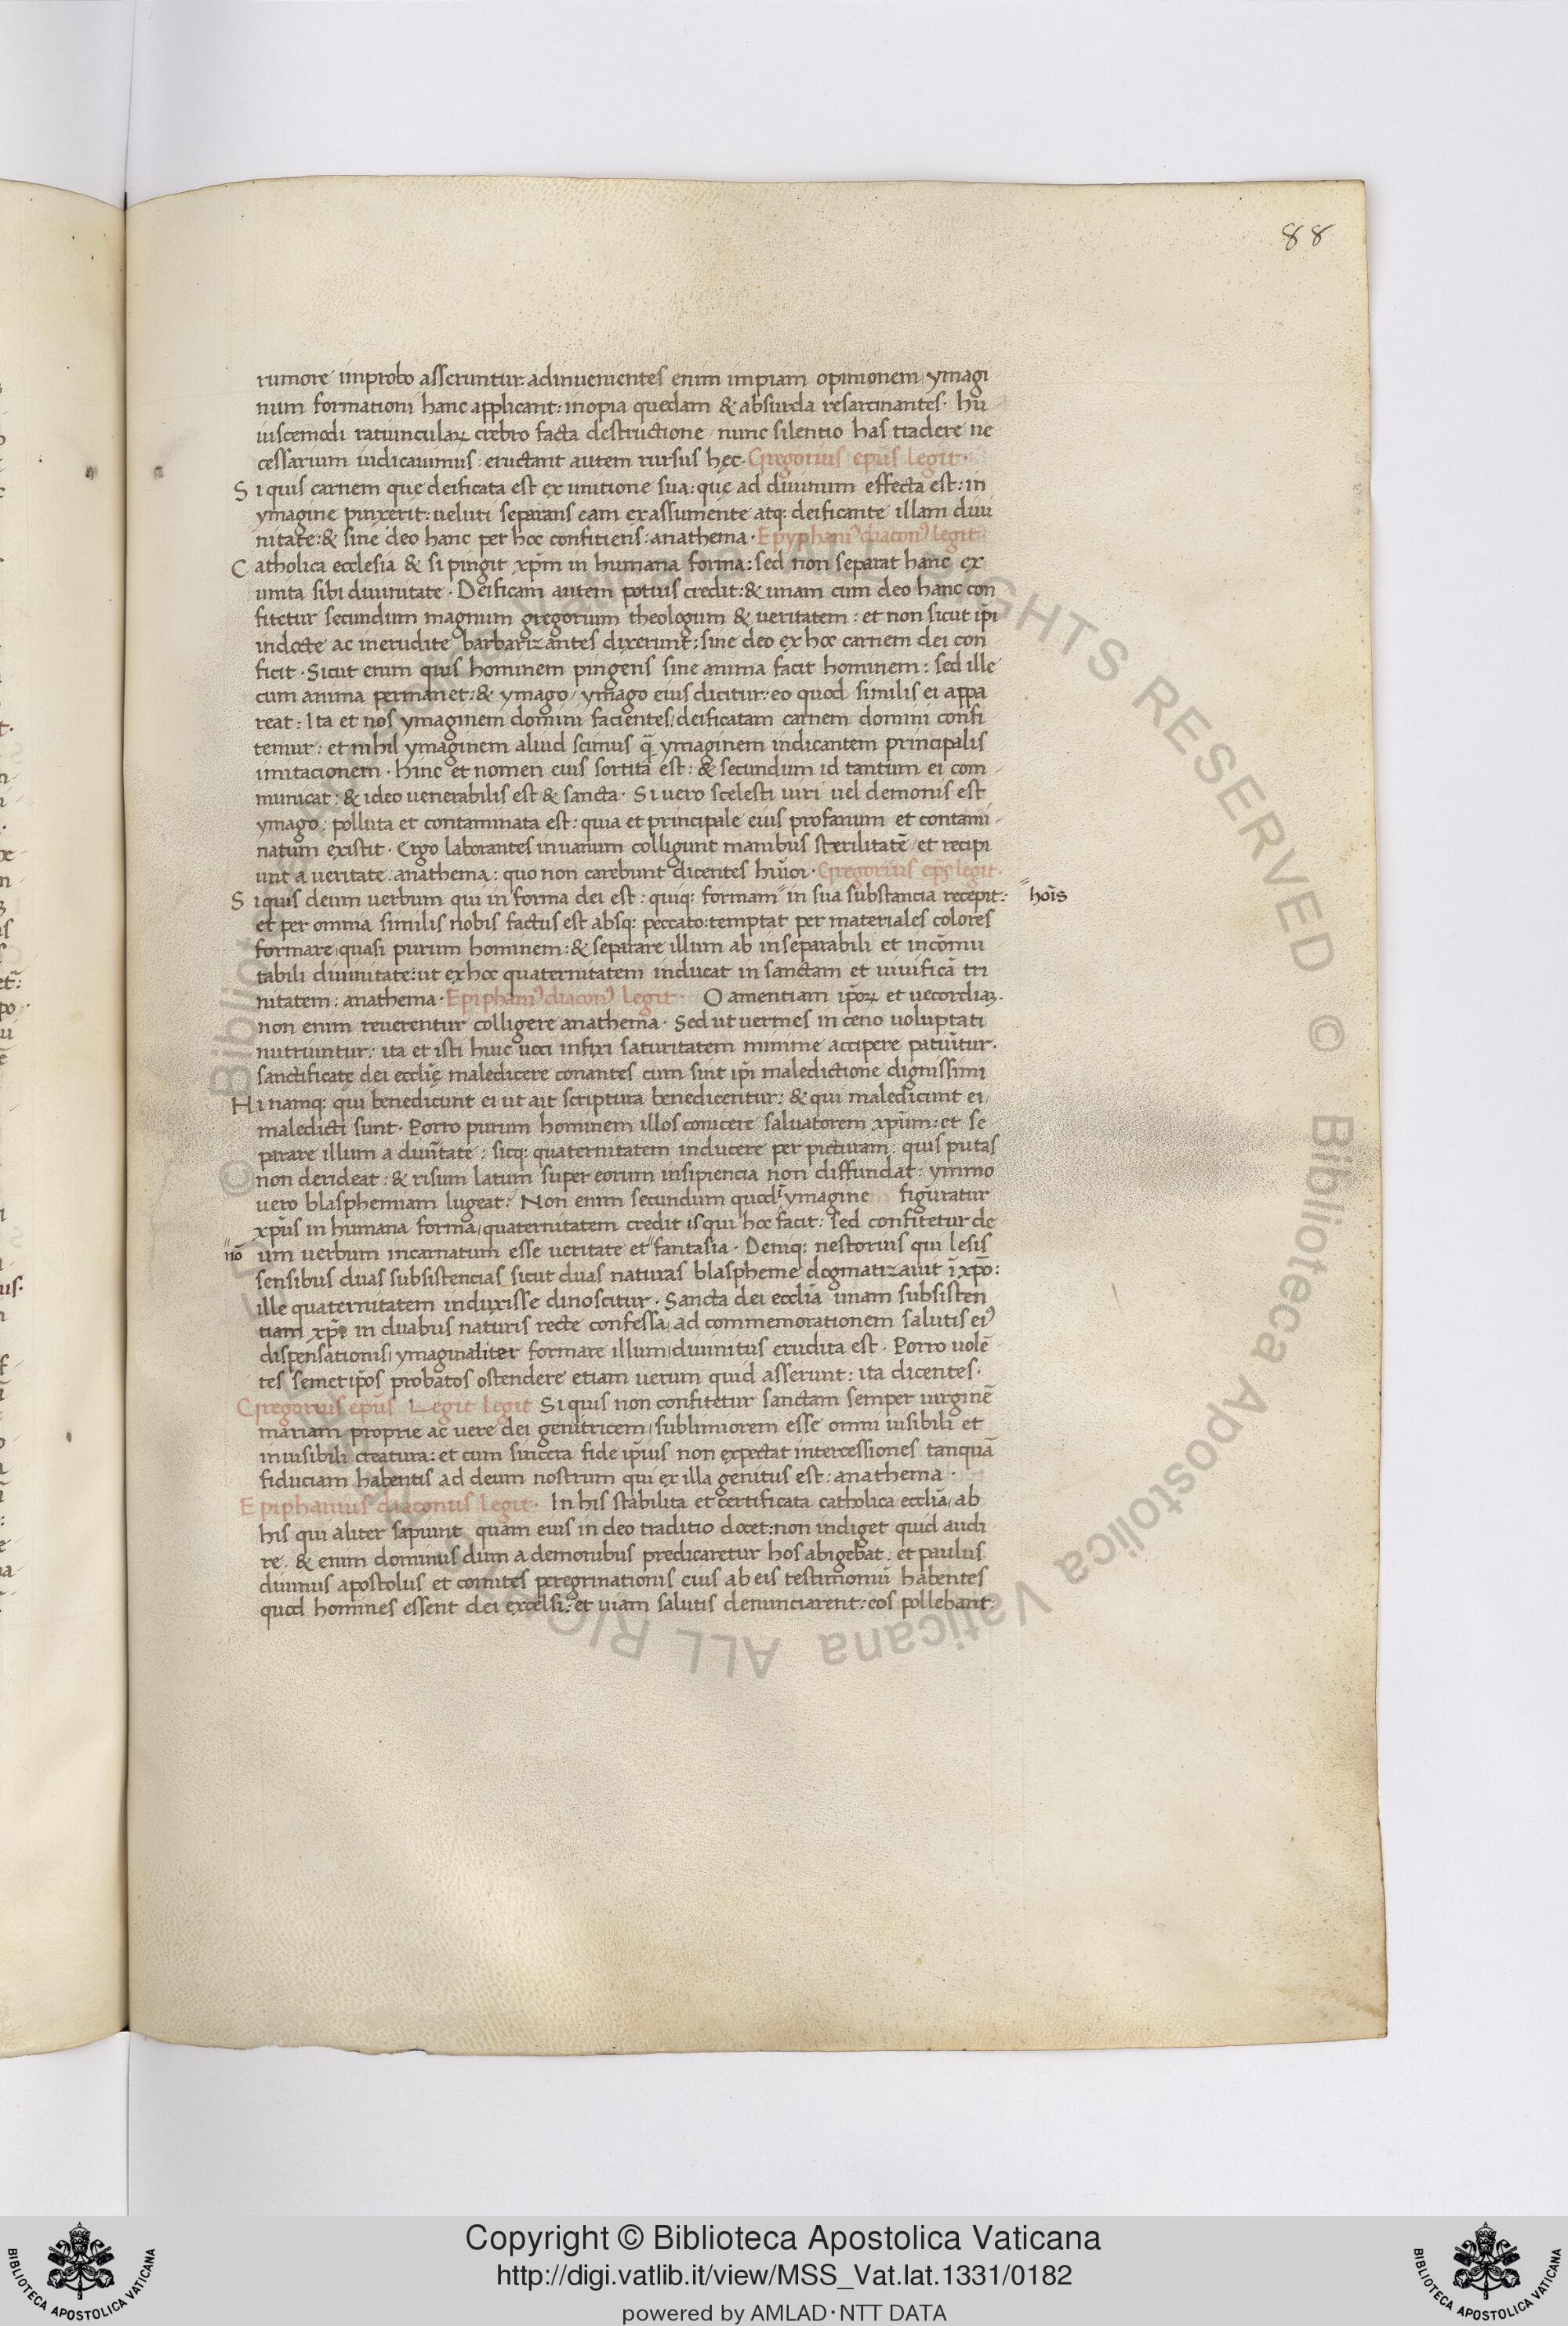 88
rumore improbo asseruntur: adinuenientes enim impiam opinionem ymagi
num formationi hanc applicant: inopia quedam & absurda resarcinantes. hu
iuscemodi ratiuncularꝝ crebro facta destructione nunc silentio has tradere ne
cessarium iudicauimus: eructant autem rursus hęc. Gregorius ep̄us legit.
Si quis carnem que deificata est ex unitione sua: quę ad diuinum effecta est: in
ymagine pinxerit: ueluti separans eam ex assumente atq: deificante illam diui
nitate: & sine deo hanc per hoc confitiens: anathema. Epyphaniꝰ diaconꝰ legit.
Catholica ecclesia & si pingit xp̄m in humana forma: sed non separat hanc ex
unita sibi diuinitate. Deificam autem potius credit: & unam cum deo hanc con
fitetur secundum magnum gregorium theologum & ueritatem: et non sicut ip̄i
indocte ac inerudite barbarizantes dixerunt: sine deo ex hoc carnem dei con
ficit. Sicut enim quis hominem pingens sine anima facit hominem: sed ille
cum anima permanet: & ymago / ymago eius dicitur: eo quod similis ei appa
reat: Ita et nos ymaginem domini facientes / deificatam carnem domini confi
temur: et nihil ymaginem aliud scimus q̄ ymaginem indicantem principalis
imitacionem. hinc et nomen eius sortita est: & secundum id tantum ei com
municat: & ideo uenerabilis est & sancta. Si uero scelesti uiri uel demonis est
ymago: polluta et contaminata est: quia et principale eius profanum et contami
natum existit. Ergo laborantes inuanum colligunt manibus sterilitatē et recipi
unt a ueritate anathema: quo non carebunt dicentes huiꝰ. Gregorius ep̄s legit.
Si quis deum uerbum qui in forma dei est: quiq: formam" in sua substancia recepit: "hoīs
et per omnia similis nobis factus est absq: peccato: temptat per materiales colores
formare / quasi purum hominem: & separare illum ab inseparabili et incōmu
tabili diuinitate: ut ex hoc quaternitatem inducat in sanctam et uiuificā tri
nitatem: anathema. Epiphaniꝰ diaconꝰ legit. O amentiam ip̄oꝝ et uecordiaꝫ.
non enim reuerentur colligere anathema. Sed ut uermes in ceno uoluptati
nutriuntur: ita et isti huic uicī infixi saturitatem minime accipere patiūtur.
sanctificatę dei eccl̄ię maledicere conantes cum sint ip̄i maledictione dignissimi
Hi namq: qui benedicunt ei ut ait scriptura benedicentur: & qui maledicunt ei
maledicti sunt. Porro purum hominem illos conicere saluatorem xp̄um: et se
parare illum a diuītate: sicq: quaternitatem inducere per picturam: quis putas
non derideat: & risum latum super eorum insipiencia non diffundat: ymmo
uero blasphemiam lugeat. Non enim secundum quod ī ymagine figuratur
xp̄us in humana forma / quaternitatem credit is qui hoc facit: sed confitetur de
"nō um uerbum incarnatum esse ueritate et" fantasia. Deniq: nestorius qui lesis
sensibus duas subsistencias sicut duas naturas blaspheme dogmatizauit ī xp̄o:
ille quaternitatem induxisse dinoscitur. Sancta dei eccl̄ia unam subsisten
tiam xp̄i in duabus naturis recte confessa / ad commemorationem salutis eiꝰ
dispensationis / ymaginaliter formare illum / diuinitus erudita est. Porro uolē
tes semetip̄os probatos ostendere etiam uerum quid asserunt: ita dicentes.
Gregorius ep̄us Legit legit Si quis non confitetur sanctam semper uirginē
mariam proprie ac uere dei genitricem / sublimiorem esse omni uisibili et
inuisibili creatura: et cum sincera fide ip̄ius non expectat intercessiones tanquā
fiduciam habentis ad deum nostrum qui ex illa genitus est: anathema.
Epiphanius diaconus legit. In his stabilita et certificata catholica eccl̄ia / ab
his qui aliter sapiunt quam eius in deo traditio docet: non indiget quid audi
re. & enim dominus dum a demonibus predicaretur hos abigebat. et paulus
diuinus apostolus et comites peregrinationis eius ab eis testimoniū habentes
quod homines essent dei excelsi: et uiam salutis denunciarent: eos pollebant
Copyright © Biblioteca Apostolica Vaticana
http://digi.vatlib.it/view/MSS_Vat.lat.1331/0182
powered by AMLAD·NTT DATA
BIBLIOTECA APOSTOLICA VATICANA
BIBLIOTECA APOSTOLICA VATICANA
© Biblioteca Apostolica Vaticana ALL RIGHTS RESERVED © Biblioteca Apostolica Vaticana ALL RIGHTS RESERVED